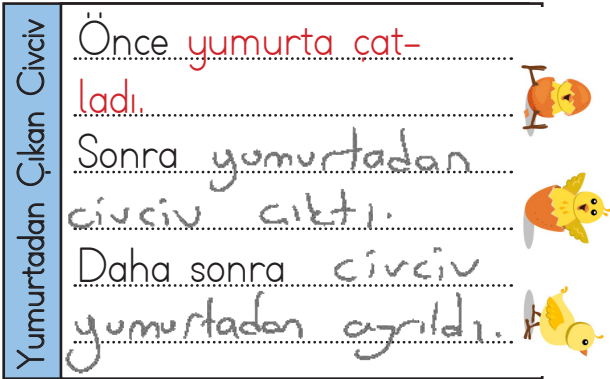 Yumurtadan Çıkan Civciv
Önce yumurta çat-
ladı.
Sonra yumurtadan
civciv çıktı.
Daha sonra civciv
yumurtadan ayrıldı.